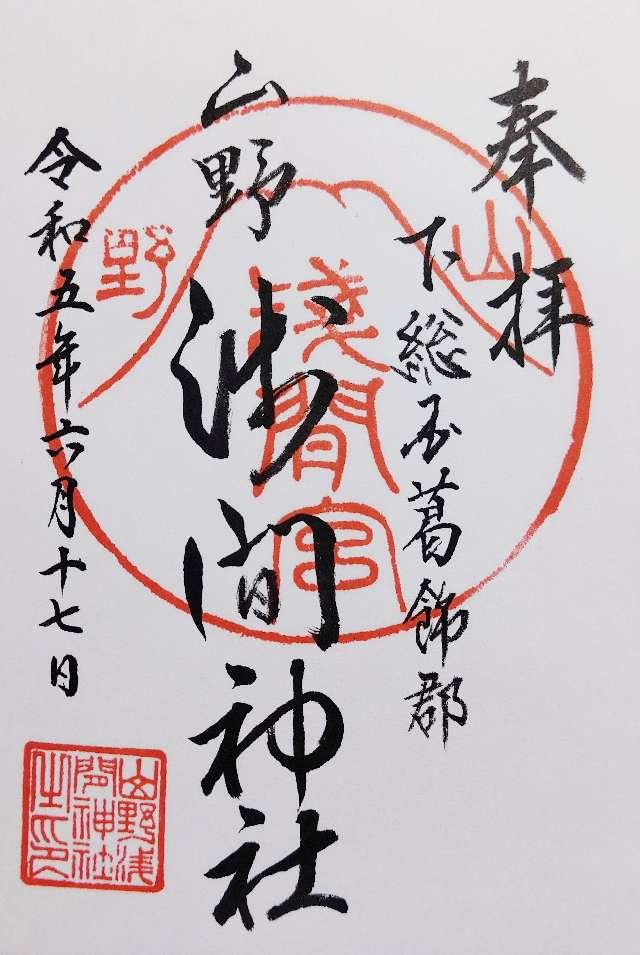 奉拝
下総国葛飾郡
山野
浅間神社
令和五年六月十七日
山
野
浅間宮
山野浅
間神社
之印